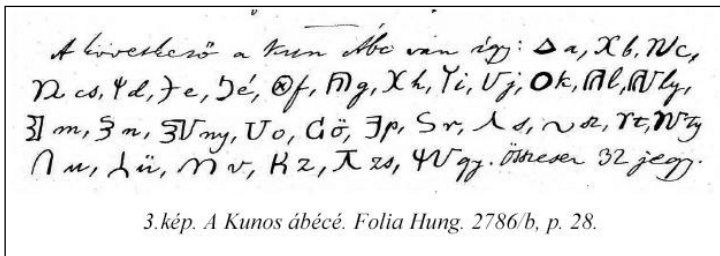 A következő a Kun Abc van így: ᐃ a, X b, N c,
cs, Ψ d, Ŧ e, é, ⊗ f, g, X h, Y i, U j, O k, l, ly,
m, n, ny, U o, G ö, Ⅎ p, S r, Λ s, ~ sz, Y t, N ty
Π u, ü, v, K z, zs, ΨV gy. összesen 32 jegy.
3.kép. A Kunos ábécé. Folia Hung. 2786/b, p. 28.